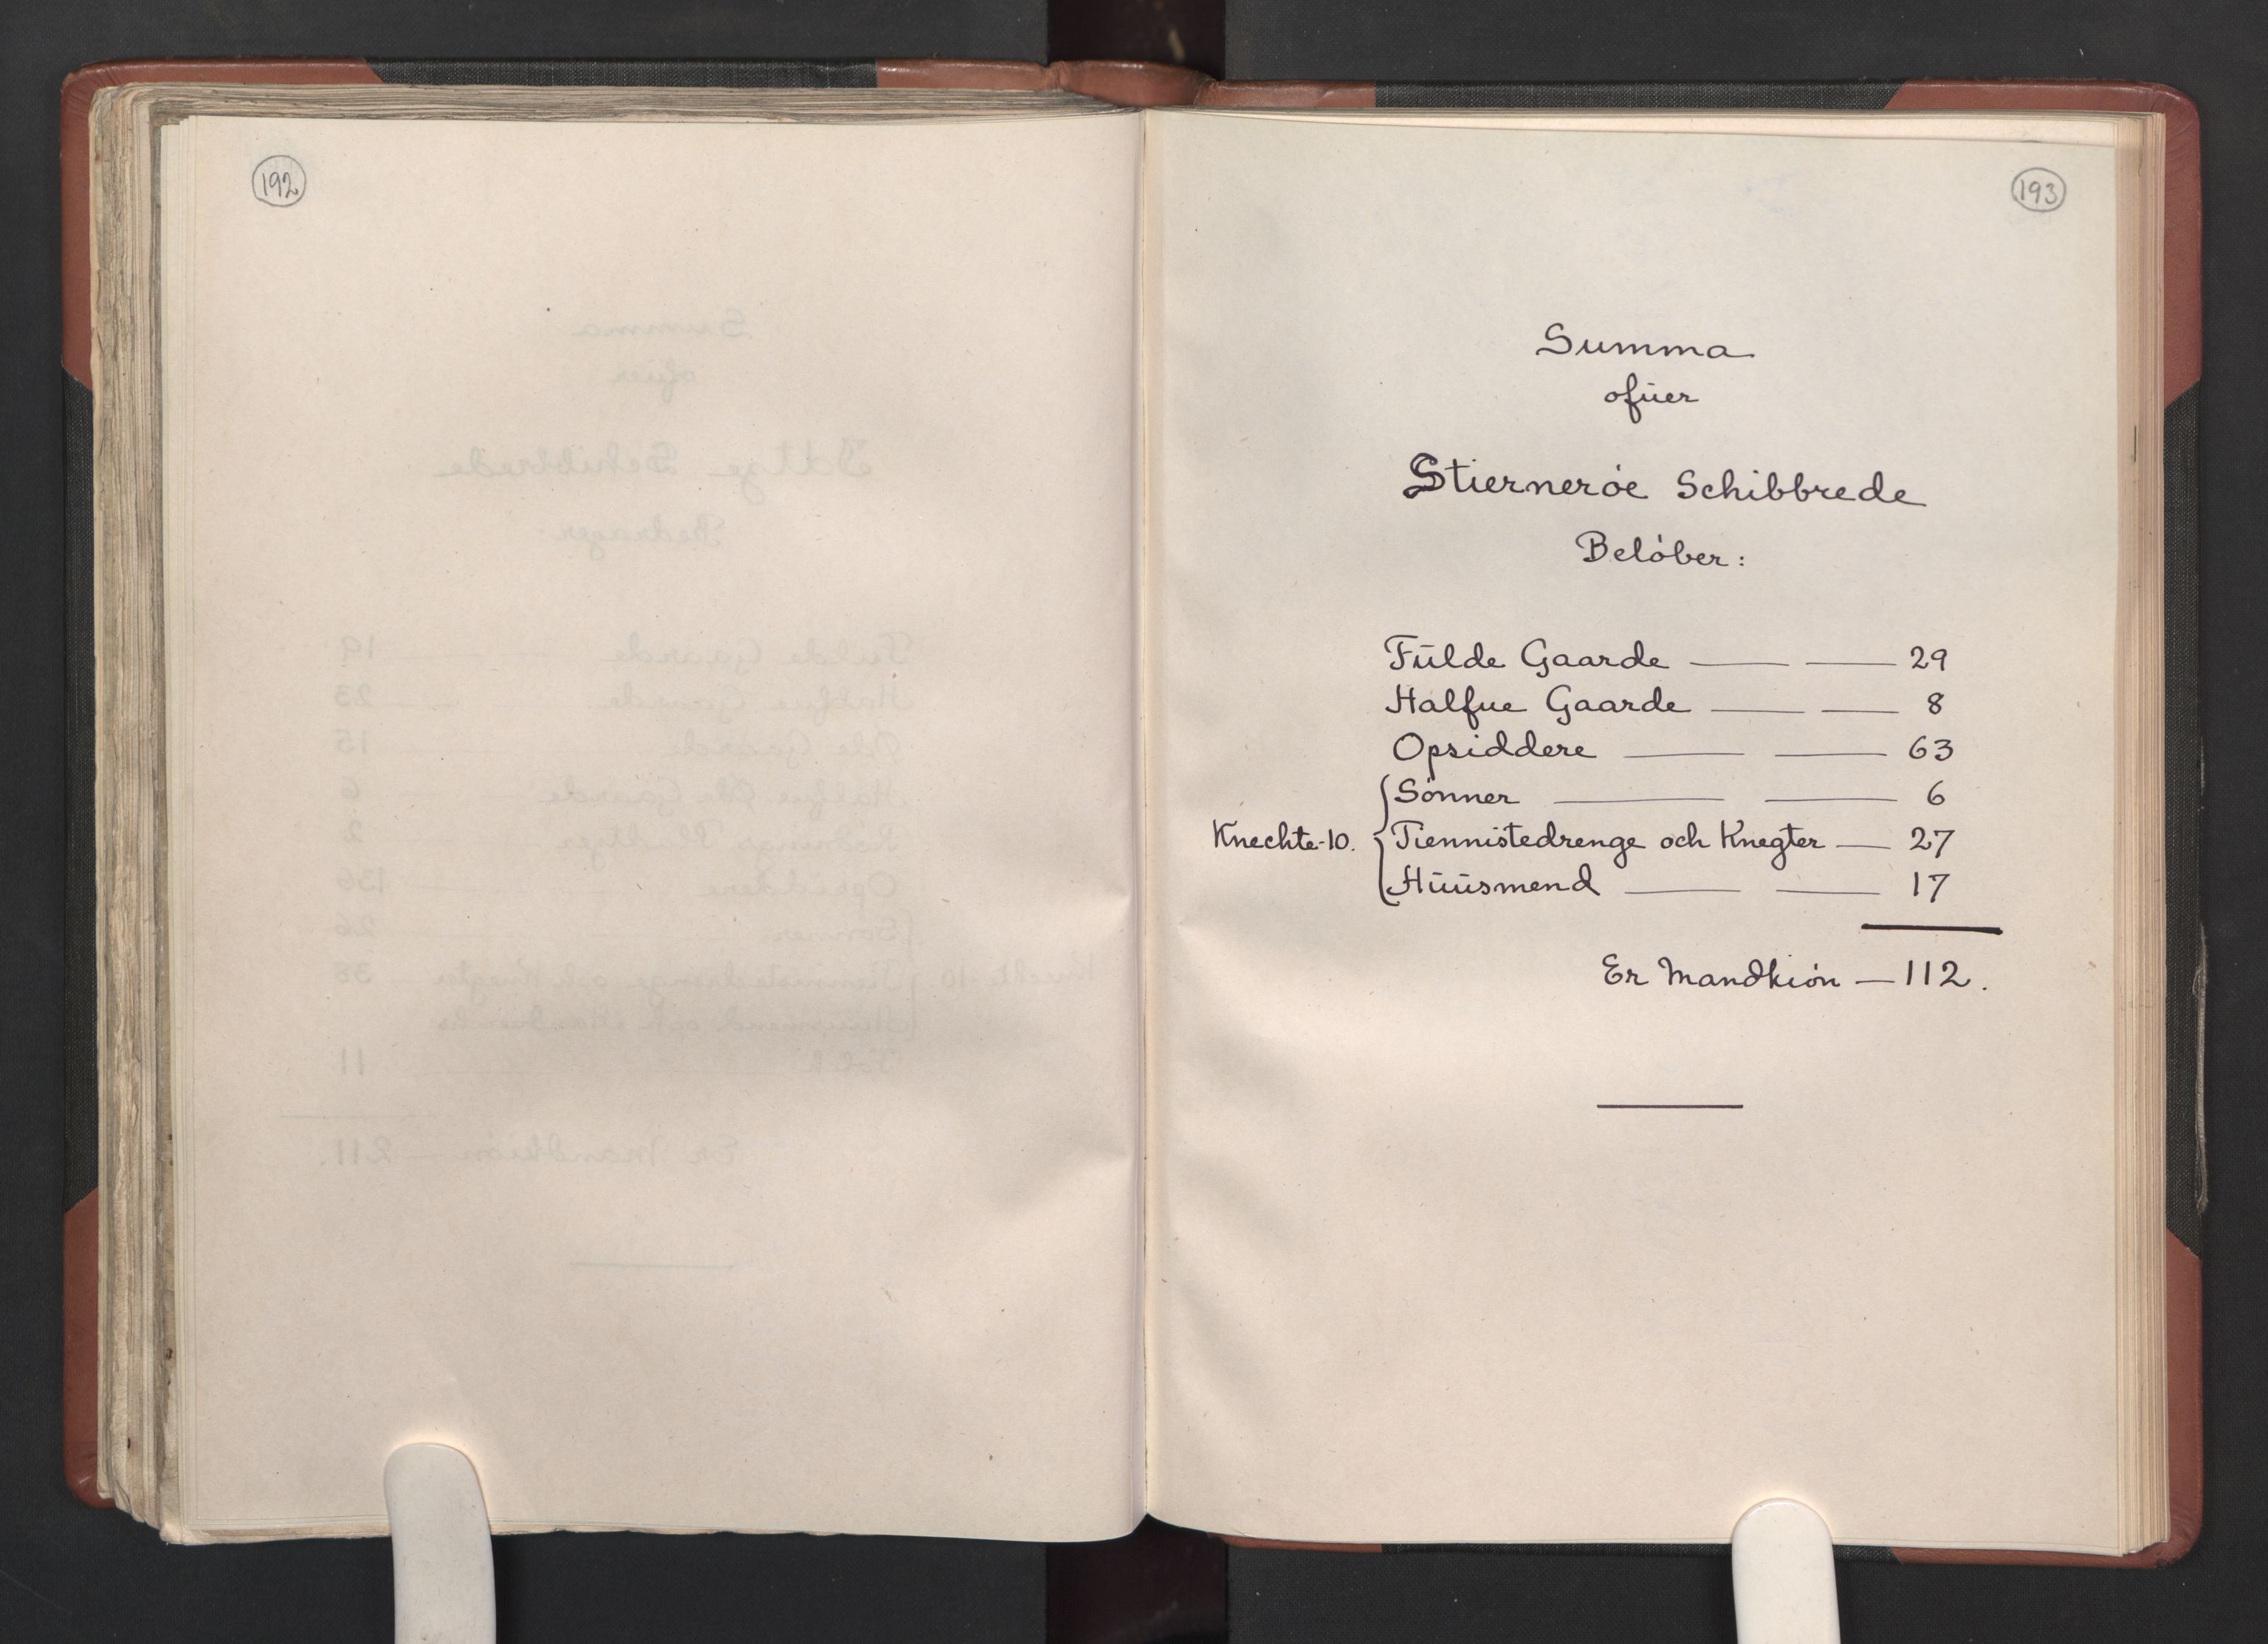 192
193
Summa
ofüer
Stierneróe Schibbrede
Belóber:
Fülde Gaarde — — 29
Halfue Gaarde — — 8
Opsiddere — — 63
Sónner — — 6
Knechte-10. Tiennistedrenge och Knegter — 27
Hüüsmend — — 17
Er Mandkión — 112.